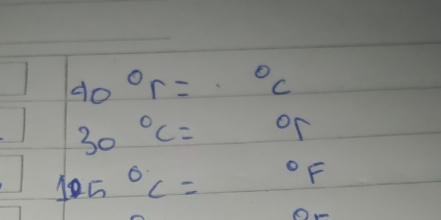 40 °r = °C
30 °C = °r
105 °C = °F